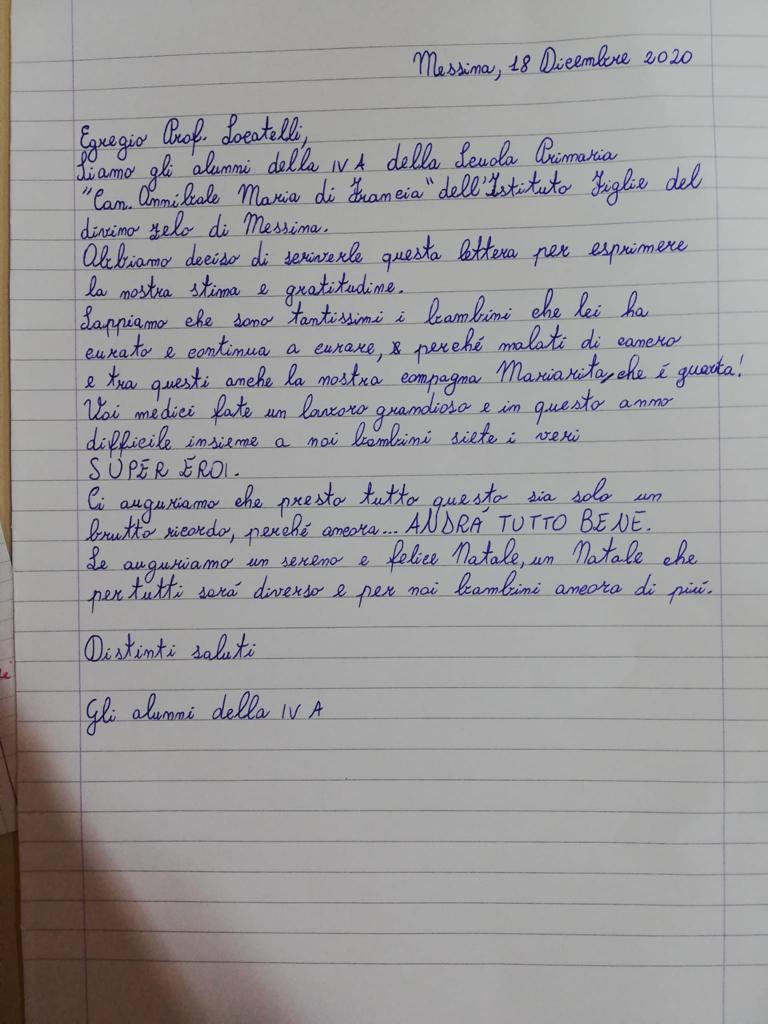 Messina, 18 Dicembre 2020
Egregio Prof. Locatelli,
Siamo gli alunni della IV A della Scuola Primaria
"Can. Annibale Maria di Francia" dell'Istituto Figlie del
divino zelo di Messina.
Abbiamo deciso di scriverle questa lettera per esprimere
la nostra stima e gratitudine.
Sappiamo che sono tantissimi i bambini che lei ha
curato e continua a curare, perché malati di cancro
e tra questi anche la nostra compagna Mariarita, che é guarita!
Voi medici fate un lavoro grandioso e in questo anno
difficile insieme a noi bambini siete i veri
SUPER EROI.
Ci auguriamo che presto tutto questo sia solo un
brutto ricordo, perché ancora... ANDRÁ TUTTO BENE.
Le auguriamo un sereno e felice Natale, un Natale che
per tutti sará diverso e per noi bambini ancora di piú.
Distinti saluti
Gli alunni della IV A